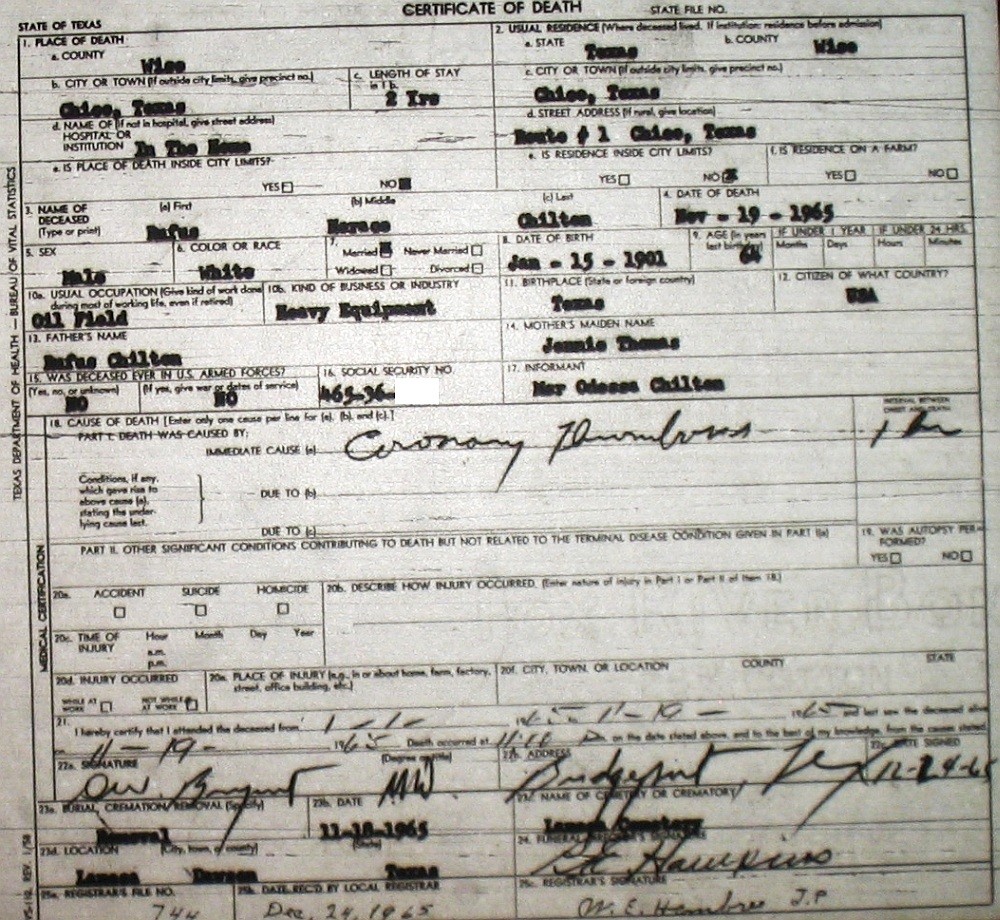 CERTIFICATE OF DEATH STATE FILE NO.
STATE OF TEXAS
1. PLACE OF DEATH
a. COUNTY
Wise
2. USUAL RESIDENCE (Where deceased lived. If institution: residence before admission)
a. STATE Texas b. COUNTY Wise
b. CITY OR TOWN (If outside city limits, give precinct no.)
Chico, Texas
c. LENGTH OF STAY
in 1 b.
2 Yrs
c. CITY OR TOWN (If outside city limits, give precinct no.)
Chico, Texas
d. NAME OF (If not in hospital, give street address)
HOSPITAL OR
INSTITUTION In The Home
d. STREET ADDRESS (If rural, give location)
Route # 1 Chico, Texas
e. IS PLACE OF DEATH INSIDE CITY LIMITS?
YES NO
e. IS RESIDENCE INSIDE CITY LIMITS?
YES NO
f. IS RESIDENCE ON A FARM?
YES NO
3. NAME OF
DECEASED
(Type or print)
(a) First
Rufus
(b) Middle
Horace
(c) Last
Chilton
4. DATE OF DEATH
Nov - 19 - 1965
5. SEX
Male
6. COLOR OR RACE
White
7.
Married Never Married
Widowed Divorced
8. DATE OF BIRTH
Jan - 15 - 1901
9. AGE (In years
last birthday)
64
IF UNDER 1 YEAR
Months Days
IF UNDER 24 HRS.
Hours Minutes
10a. USUAL OCCUPATION (Give kind of work done
during most of working life, even if retired)
Oil Field
10b. KIND OF BUSINESS OR INDUSTRY
Heavy Equipment
11. BIRTHPLACE (State or foreign country)
Texas
12. CITIZEN OF WHAT COUNTRY?
USA
13. FATHER'S NAME
Rufus Chilton
14. MOTHER'S MAIDEN NAME
Jennie Thomas
15. WAS DECEASED EVER IN U.S. ARMED FORCES?
(Yes, no, or unknown) (If yes, give war or dates of service)
NO NO
16. SOCIAL SECURITY NO.
465-36-
17. INFORMANT
Mar Odessa Chilton
18. CAUSE OF DEATH [Enter only one cause per line for (a), (b), and (c).]
PART I. DEATH WAS CAUSED BY:
IMMEDIATE CAUSE (a) Coronary Thrombosis
INTERVAL BETWEEN
ONSET AND DEATH
Conditions, if any,
which gave rise to
above cause (a),
stating the under-
lying cause last.
DUE TO (b)
DUE TO (c)
PART II. OTHER SIGNIFICANT CONDITIONS CONTRIBUTING TO DEATH BUT NOT RELATED TO THE TERMINAL DISEASE CONDITION GIVEN IN PART I(a)
19. WAS AUTOPSY PER-
FORMED?
YES NO
20a. ACCIDENT SUICIDE HOMICIDE
20b. DESCRIBE HOW INJURY OCCURRED. (Enter nature of injury in Part I or Part II of item 18.)
20c. TIME OF
INJURY
Hour Month Day Year
a.m.
p.m.
20d. INJURY OCCURRED
WHILE AT
WORK
NOT WHILE
AT WORK
20e. PLACE OF INJURY (e.g., in or about home, farm, factory,
street, office building, etc.)
20f. CITY, TOWN, OR LOCATION COUNTY STATE
21.
I hereby certify that I attended the deceased from 1-1- 1965 11-19- 1965 and last saw the deceased alive
on 11-19- 1965 Death occurred at on the date stated above, and to the best of my knowledge, from the causes stated.
22a. SIGNATURE (Degree or title)
Bryant MD
22b. ADDRESS
Bridgeport, Tex
22c. DATE SIGNED
12-24-65
23a. BURIAL, CREMATION, REMOVAL (Specify)
Removal
23b. DATE
11-18-1965
23c. NAME OF CEMETERY OR CREMATORY
Lamesa Cemetery
23d. LOCATION (City, town, or county) (State)
Lamesa Dawson Texas
24. FUNERAL DIRECTOR'S SIGNATURE
Hawkins
25a. REGISTRAR'S FILE NO.
744
25b. DATE REC'D BY LOCAL REGISTRAR
Dec. 24, 1965
25c. REGISTRAR'S SIGNATURE
W. E. Hembree J.P
TEXAS DEPARTMENT OF HEALTH — BUREAU OF VITAL STATISTICS
MEDICAL CERTIFICATION
VS-112 REV. 1/58